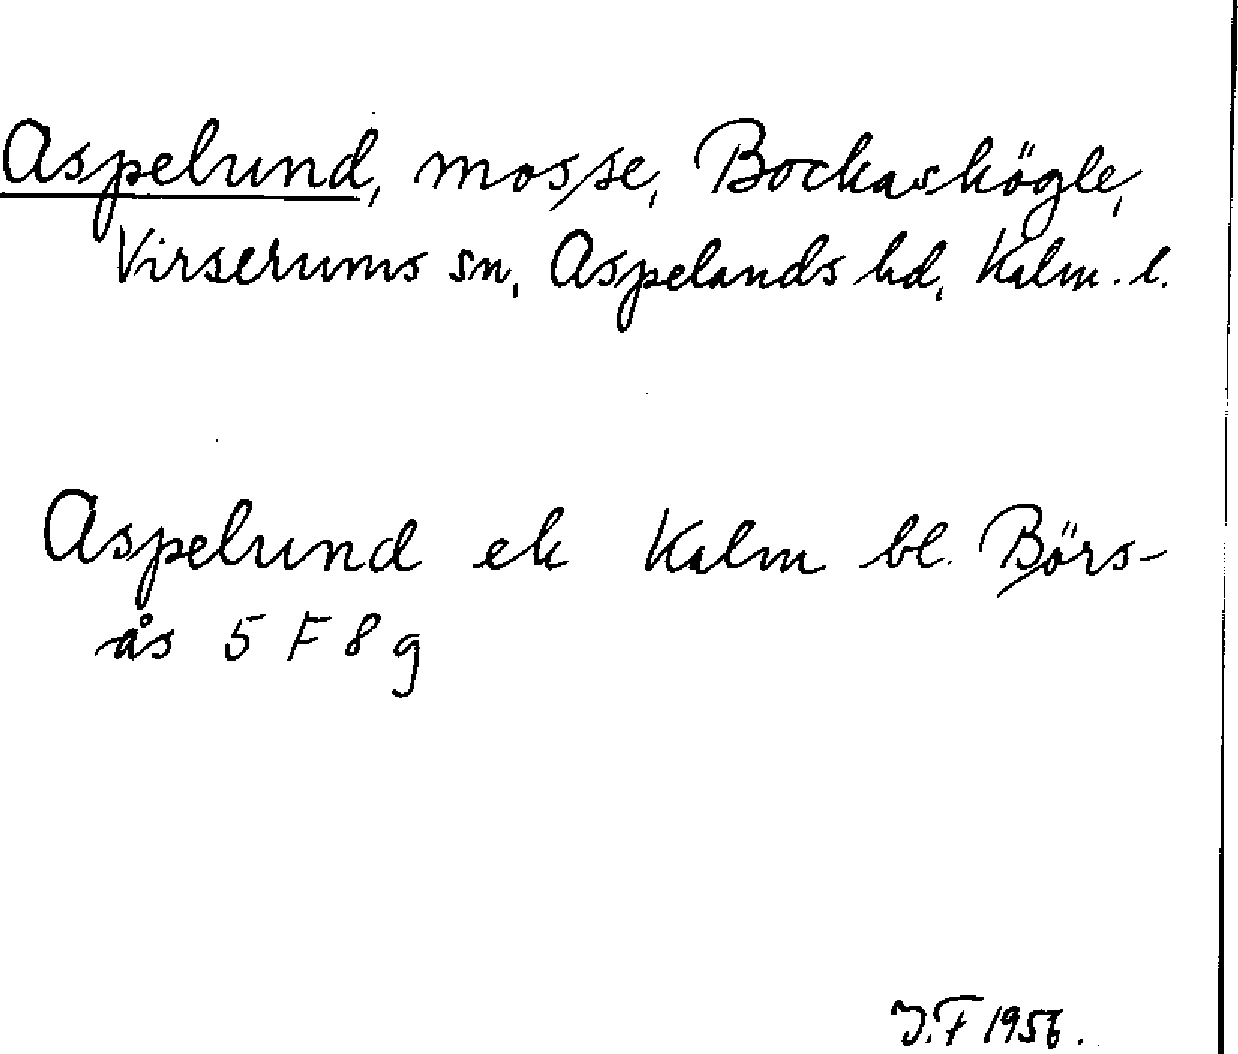 Aspelund, mosse, Bockaskögle,
Virserums sn, Aspelands hd, Kalm. l.
Aspelund ek Kalm bl. Börs-
ås 5 F 8 g
J.F 1956.